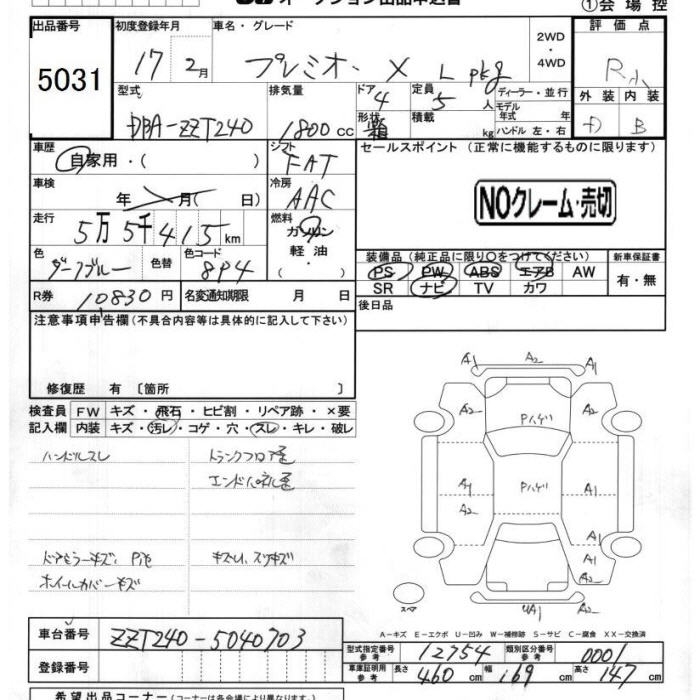 ①会場控
出品番号 初度登録年月 車名・グレード 2WD・4WD 評価点
5031 17 2月 プレミオ X L pkg R
型式 排気量 ドア 4 定員 5人 ディーラー・並行 外装 内装
DBA-ZZT240 1800cc 形状 箱 積載 kg モデル年式 年 ハンドル 左・右 D B
車歴 シフト セールスポイント (正常に機能するものに限ります)
自家用・( ) FAT
車検 年 月( 日) 冷房 AAC NOクレーム・売切
走行 5万5千415km 燃料 ガソリン・軽油・
装備品 (純正品に限り○をつけてください) 新車保証書
色 ダークブルー 色替 色コード 8P4 PS PW ABS エアB AW 有・無
SR ナビ TV カワ
R券 10830円 名変通知期限 月 日 後日品
注意事項申告欄(不具合内容等は具体的に記入して下さい)
修復歴 有 〔箇所 〕
検査員 FW キズ・飛石・ヒビ割・リペア跡・×要
記入欄 内装 キズ・汚レ・コゲ・穴・スレ・キレ・破レ
ハンドルスレ トランクフロア
エンドパネル
キズ
ホイールカバーキズ
A1 A2 A1
A2 A2
Pハゲ
A1 Pハゲ A1
A2
A1
A2
A1
スペア
A-キズ E-エクボ U-凹み W-補修跡 S-サビ C-腐食 XX-交換済
車台番号 ZZT240-5040703
型式指定番号 参考 12754 類別区分番号 参考 0001
登録番号 車庫証明用 参考 長さ 460cm 幅 169cm 高さ 147cm
希望出品コーナー